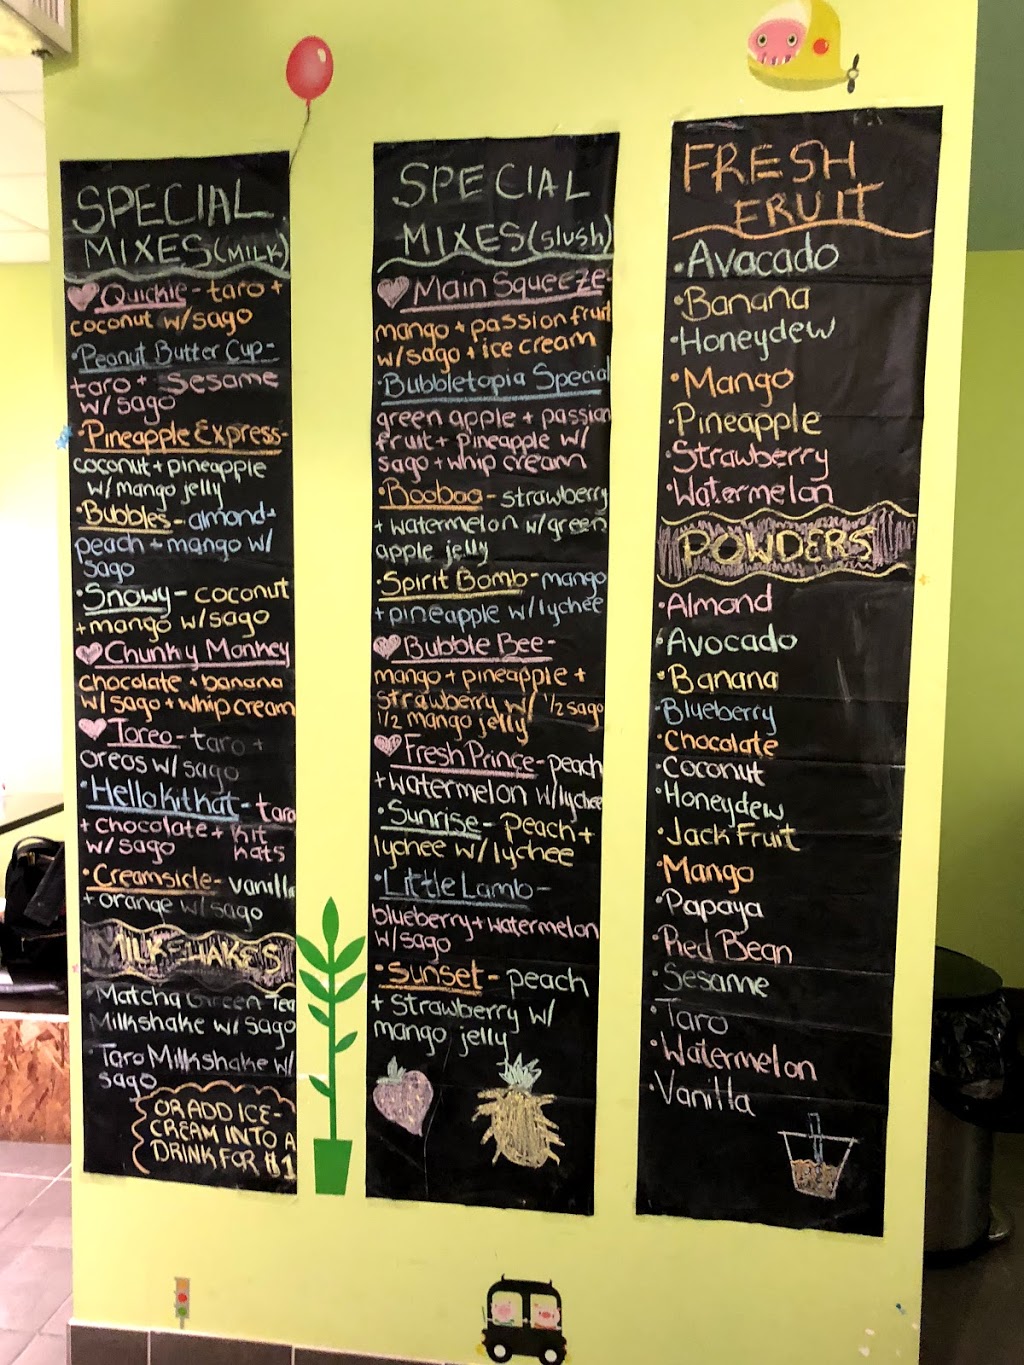 SPECIAL
MIXES (MILK)
Quickie - taro +
coconut w/sago
• Peanut Butter Cup -
taro + sesame
w/sago
• Pineapple Express -
coconut + pineapple
w/mango jelly
• Bubbles - almond +
peach + mango w/
sago
• Snowy - coconut
+ mango w/sago
Chunky Monkey
chocolate + banana
w/sago + whip cream
Toreo - taro +
oreos w/sago
• Hello Kit Kat - taro
+ chocolate + Kit
w/sago Kats
• Creamsicle - vanilla
+ orange w/sago
MILK-SHAKES
• Matcha Green Tea
Milkshake w/sago
• Taro Milkshake w/
sago
OR ADD ICE-
CREAM INTO A
DRINK FOR $1
SPECIAL
MIXES (slush)
Main Squeeze -
mango + passion fruit
w/sago + ice cream
• Bubbletopia Special
green apple + passion
fruit + pineapple w/
sago + whip cream
• Booboo - strawberry
+ watermelon w/green
apple jelly
• Spirit Bomb - mango
+ pineapple w/lychee
Bubble Bee -
mango + pineapple +
strawberry w/ 1/2 sago
1/2 mango jelly
Fresh Prince - peach
+ watermelon w/lychee
• Sunrise - Peach +
lychee w/lychee
• Little Lamb -
blueberry + watermelon
w/sago
• Sunset - peach
+ strawberry w/
mango jelly
FRESH
FRUIT
• Avacado
• Banana
• Honeydew
• Mango
• Pineapple
• Strawberry
• Watermelon
POWDERS
• Almond
• Avocado
• Banana
• Blueberry
• Chocolate
• Coconut
• Honeydew
• Jack Fruit
• Mango
• Papaya
• Red Bean
• Sesame
• Taro
• Watermelon
• Vanilla